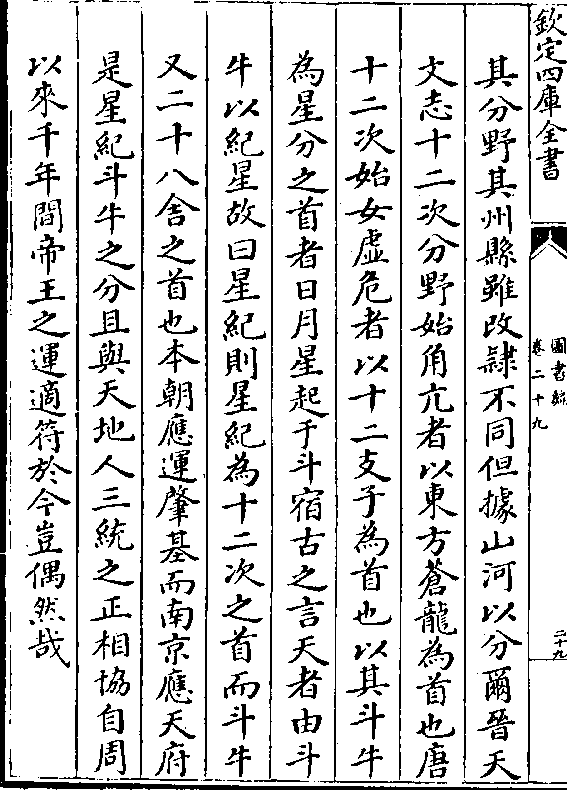 欽定四庫全書
圖書編
卷二十九
二十九
其分野其州縣雖改隷不同但據山河以分爾晉天
文志十二次分野始角亢者以東方蒼龍為首也唐
十二次始女虛危者以十二支子為首也以其斗牛
為星分之首者日月星起于斗宿古之言天者由斗
牛以紀星故曰星紀則星紀為十二次之首而斗牛
又二十八舍之首也本朝應運肇基而南京應天府
是星紀斗牛之分且與天地人三統之正相協自周
以來千年間帝王之運適符於今豈偶然哉